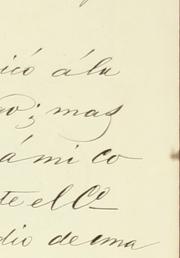 icó á la
go; mas
á mi co
te el Co
dio de una